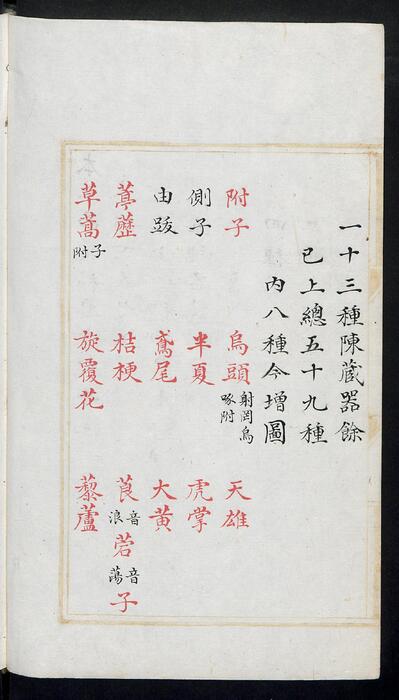 一十三種陳藏器餘
已上總五十九種
內八種今增圖
附子 烏頭射罔烏喙附 天雄
側子 半夏 虎掌
由跋 鳶尾 大黃
葶藶 桔梗 莨音浪菪音蕩子
草蒿子附 旋覆花 藜蘆